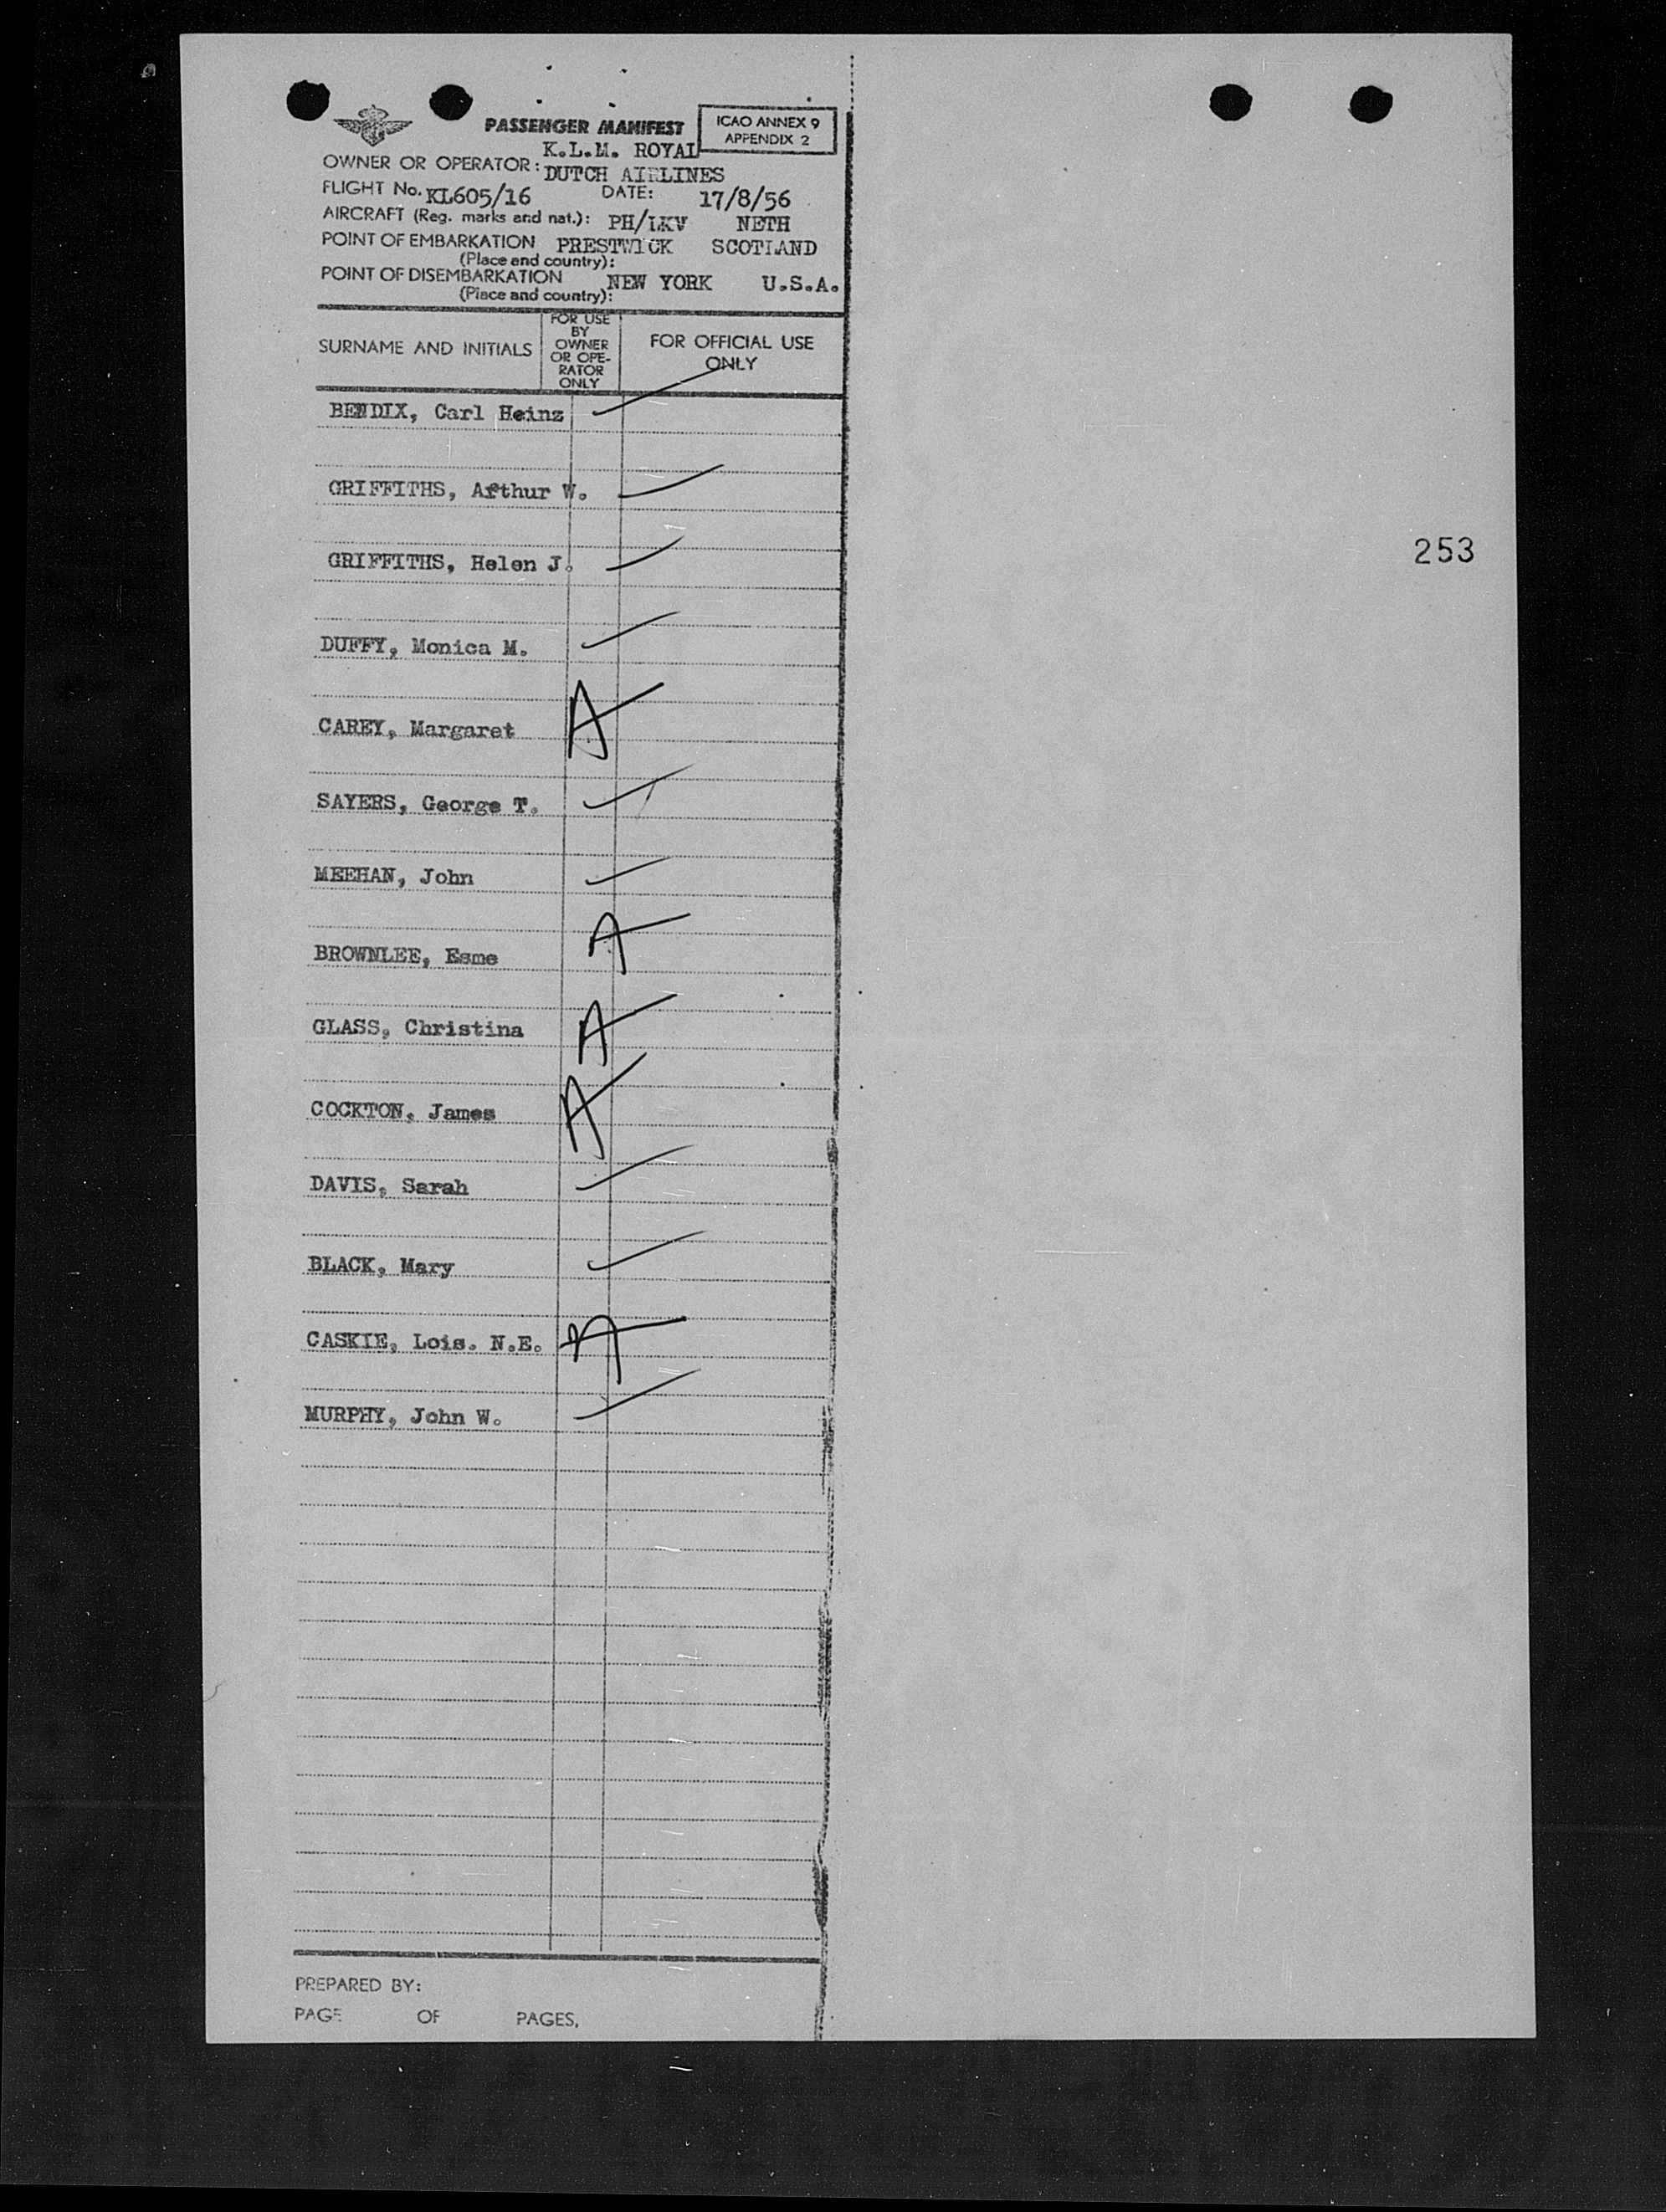 PASSENGER MANIFEST
ICAO ANNEX 9
APPENDIX 2
K.L.M. ROYAL
OWNER OR OPERATOR: DUTCH AIRLINES
FLIGHT No. KL605/16 DATE: 17/8/56
AIRCRAFT (Reg. marks and nat.): PH/LKV NETH
POINT OF EMBARKATION PRESTWICK SCOTLAND
(Place and country):
POINT OF DISEMBARKATION NEW YORK U.S.A.
(Place and country):
SURNAME AND INITIALS
FOR USE
BY
OWNER
OR OPE-
RATOR
ONLY
FOR OFFICIAL USE
ONLY
BENDIX, Carl Heinz
GRIFFITHS, Arthur W.
253
GRIFFITHS, Helen J.
DUFFY, Monica M.
CAREY, Margaret A
SAYERS, George T.
MEEHAN, John
BROWNLEE, Esme A
GLASS, Christina A
COCKTON, James A
DAVIS, Sarah
BLACK, Mary
CASKIE, Lois. N.E. A
MURPHY, John W.
PREPARED BY:
PAGE OF PAGES.